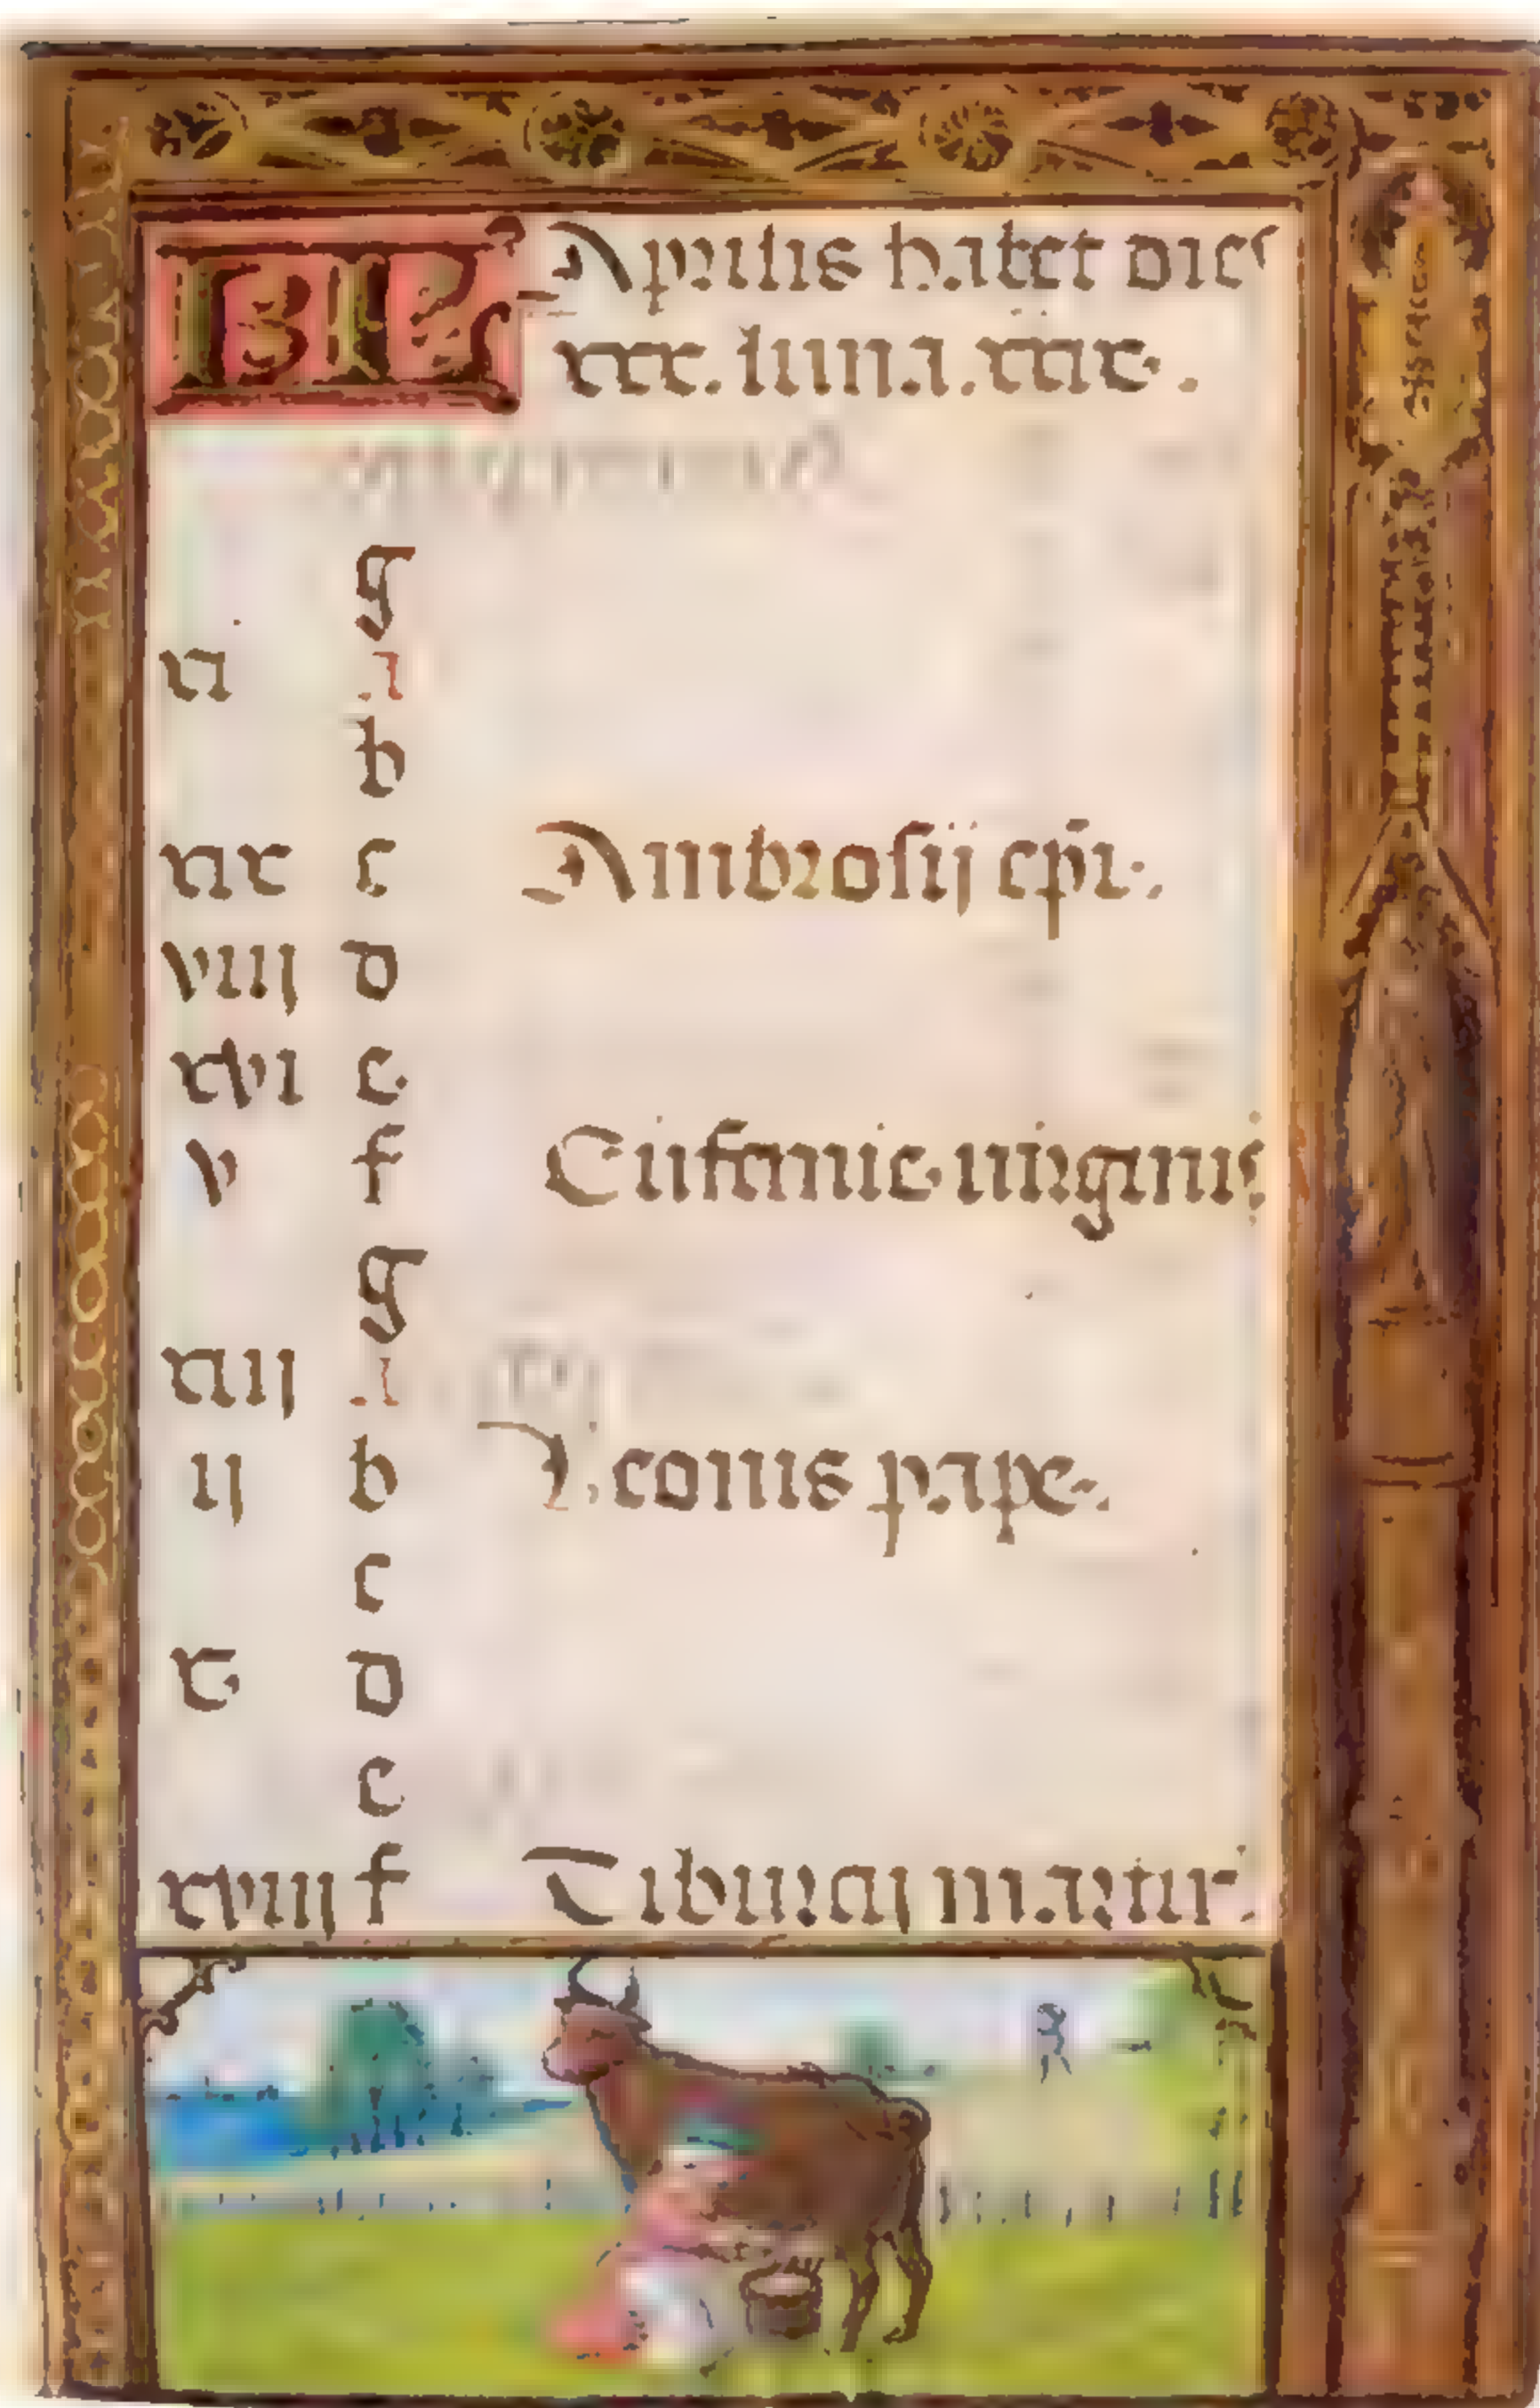 KL Aprilis habet dies
xxx. luna. xxix.
g
xi a
b
xix c Ambrosij ep̄i.
viij d
xvi e
v f Eufemie uirginis
g
xiij a
ij b Leonis pape.
c
x d
e
xviij f Tiburcij martir.